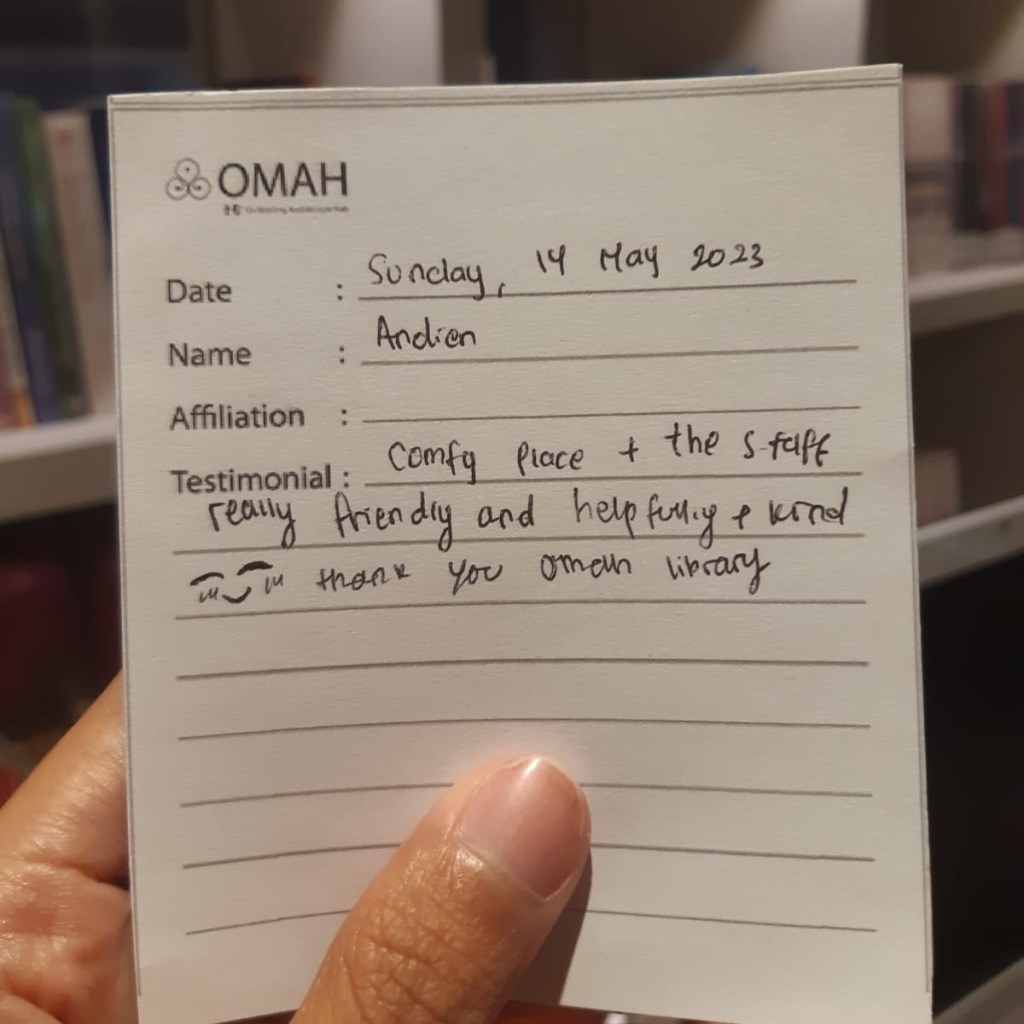 OMAH
Date : Sunday, 14 May 2023
Name : Andien
Affiliation :
Testimonial : Comfy place + the staff
really friendly and helpfully + kind
thank you omah library